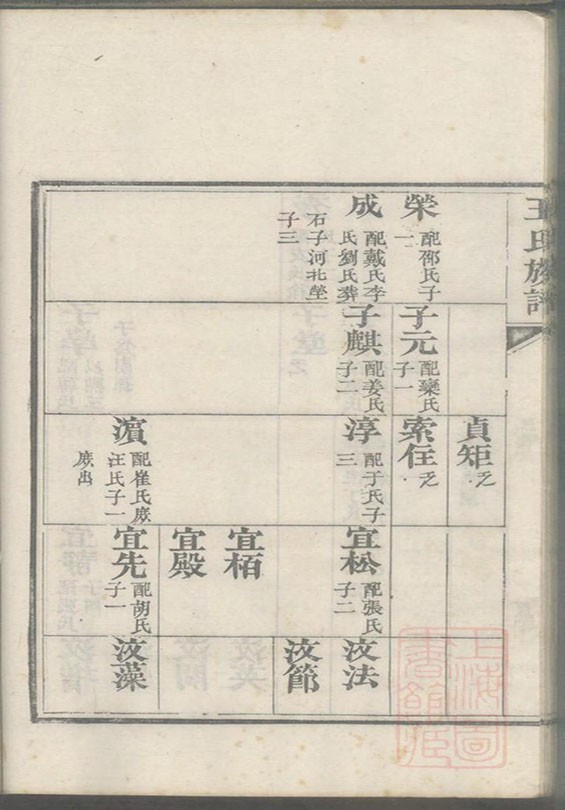 王氏族譜
榮
配邵氏子
一
成
配戴氏李
氏劉氏葬
石子河北塋
子三
子元
配欒氏
子一
子麒
配姜氏
子二
貞矩
乏
索住
乏
淳
配于氏子
三
濵
配崔氏庻
汪氏子一
庻出
宜松
配張氏
子二
宜栢
宜殿
宜先
配胡氏
子一
汝法
汝節
汝藻
上海圖
書館藏